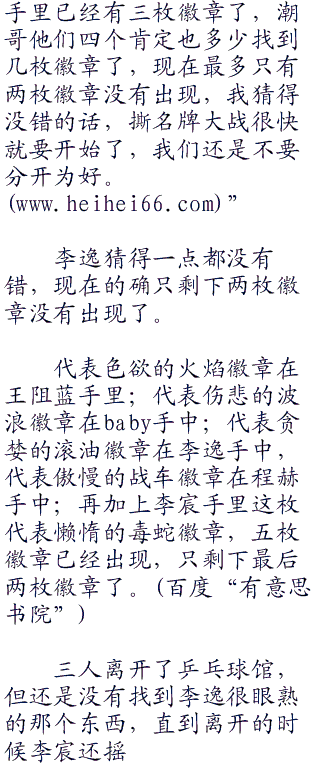 手里已经有三枚徽章了，潮
哥他们四个肯定也多少找到
几枚徽章了，现在最多只有
两枚徽章没有出现，我猜得
没错的话，撕名牌大战很快
就要开始了，我们还是不要
分开为好。
(www.heihei66.com)”
李逸猜得一点都没有
错，现在的确只剩下两枚徽
章没有出现了。
代表色欲的火焰徽章在
王阻蓝手里；代表伤悲的波
浪徽章在baby手中；代表贪
婪的滚油徽章在李逸手中，
代表傲慢的战车徽章在程赫
手中；再加上李宸手里这枚
代表懒惰的毒蛇徽章，五枚
徽章已经出现，只剩下最后
两枚徽章了。(百度“有意思
书院”)
三人离开了乒乓球馆，
但还是没有找到李逸很眼熟
的那个东西，直到离开的时
候李宸还摇